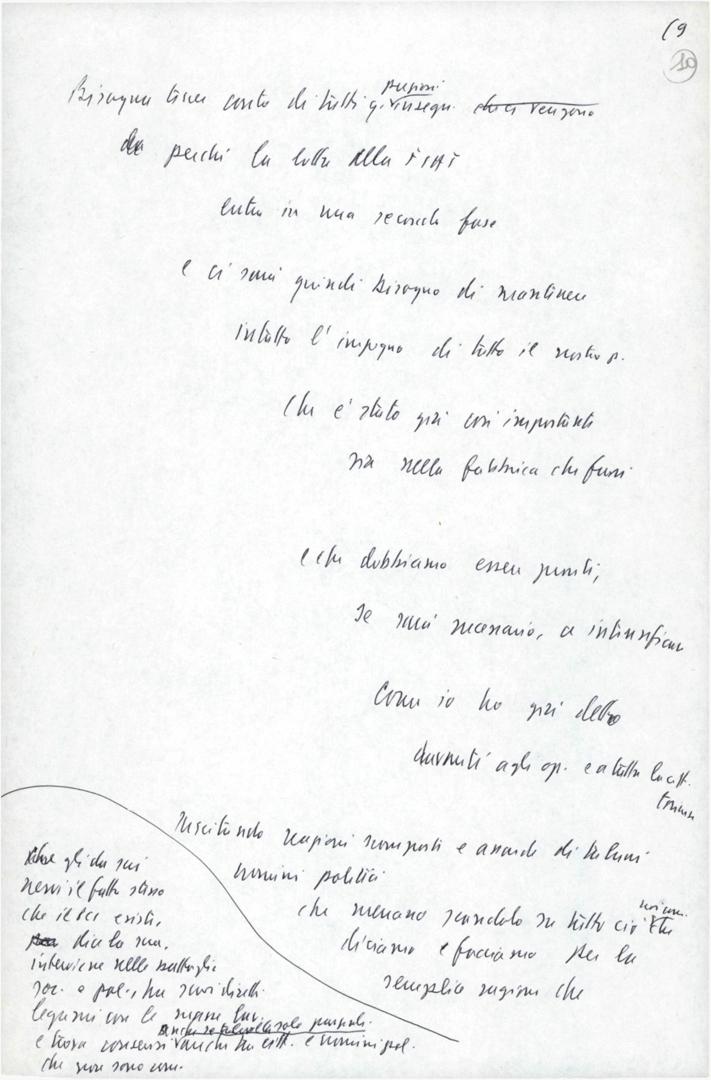 19
10
pressioni
Bisogna tener conto di tutti q. insegn. che ci vengono
da perché la lotta alla FIAT
entra in una seconda fase
e ci sarà quindi bisogno di mantenere
intatto l'impegno di tutto il nostro p.
che è stato già così importante
sia nella fabbrica che fuori
e che dobbiamo essere pronti,
se sarà necessario, a intensificare
Come io ho già detto
davanti agli op. e a tutta la citt.
torinese
suscitando reazioni scomposte e assurde di taluni
uomini politici
che menano scandalo su tutto ciò che
noi com.
diciamo e facciamo per la
semplice ragione che
gli dà sui
nervi il fatto stesso
che il PCI esista,
dica la sua,
interviene nelle battaglie
soc. e pol., ha suoi diretti
legami con le masse lav.
anche se talvolta solo parziali
e trova consensi anche tra citt. e uomini pol.
che non sono com.